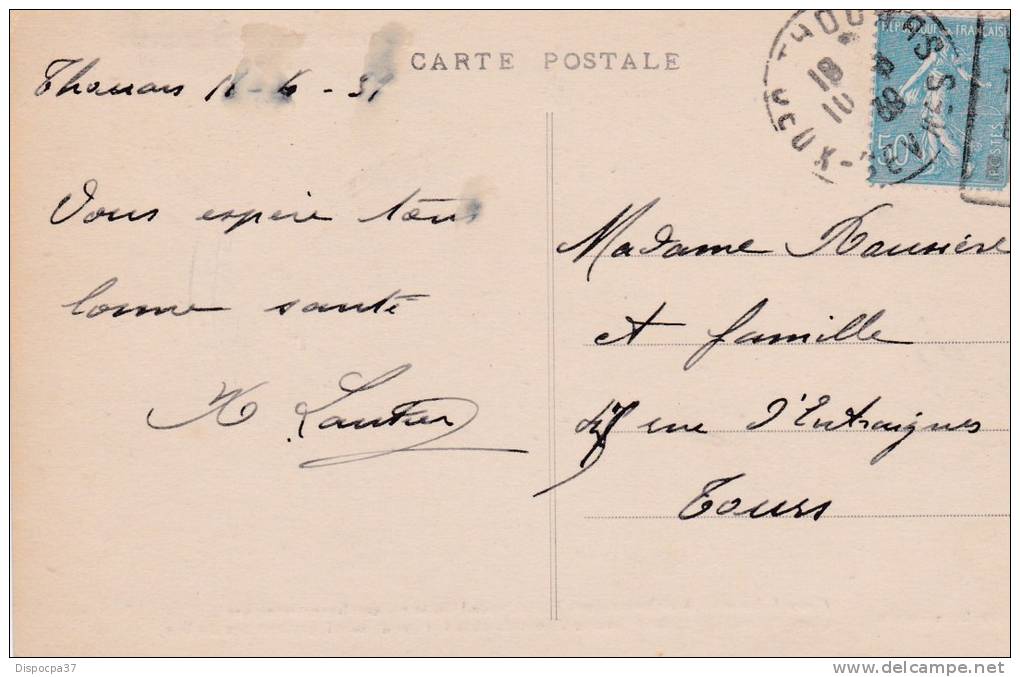 CARTE POSTALE
Thouars 18 - 6 - 31
Vous espère tous
bonne santé
Lautier
Madame Rousière
et famille
rue d'Entraigues
Tours
THOUARS
DEUX-SÈVRES
18
10
RÉPUBLIQUE FRANÇAISE
50
POSTES
Dispocpa37
http://www.delcampe.net